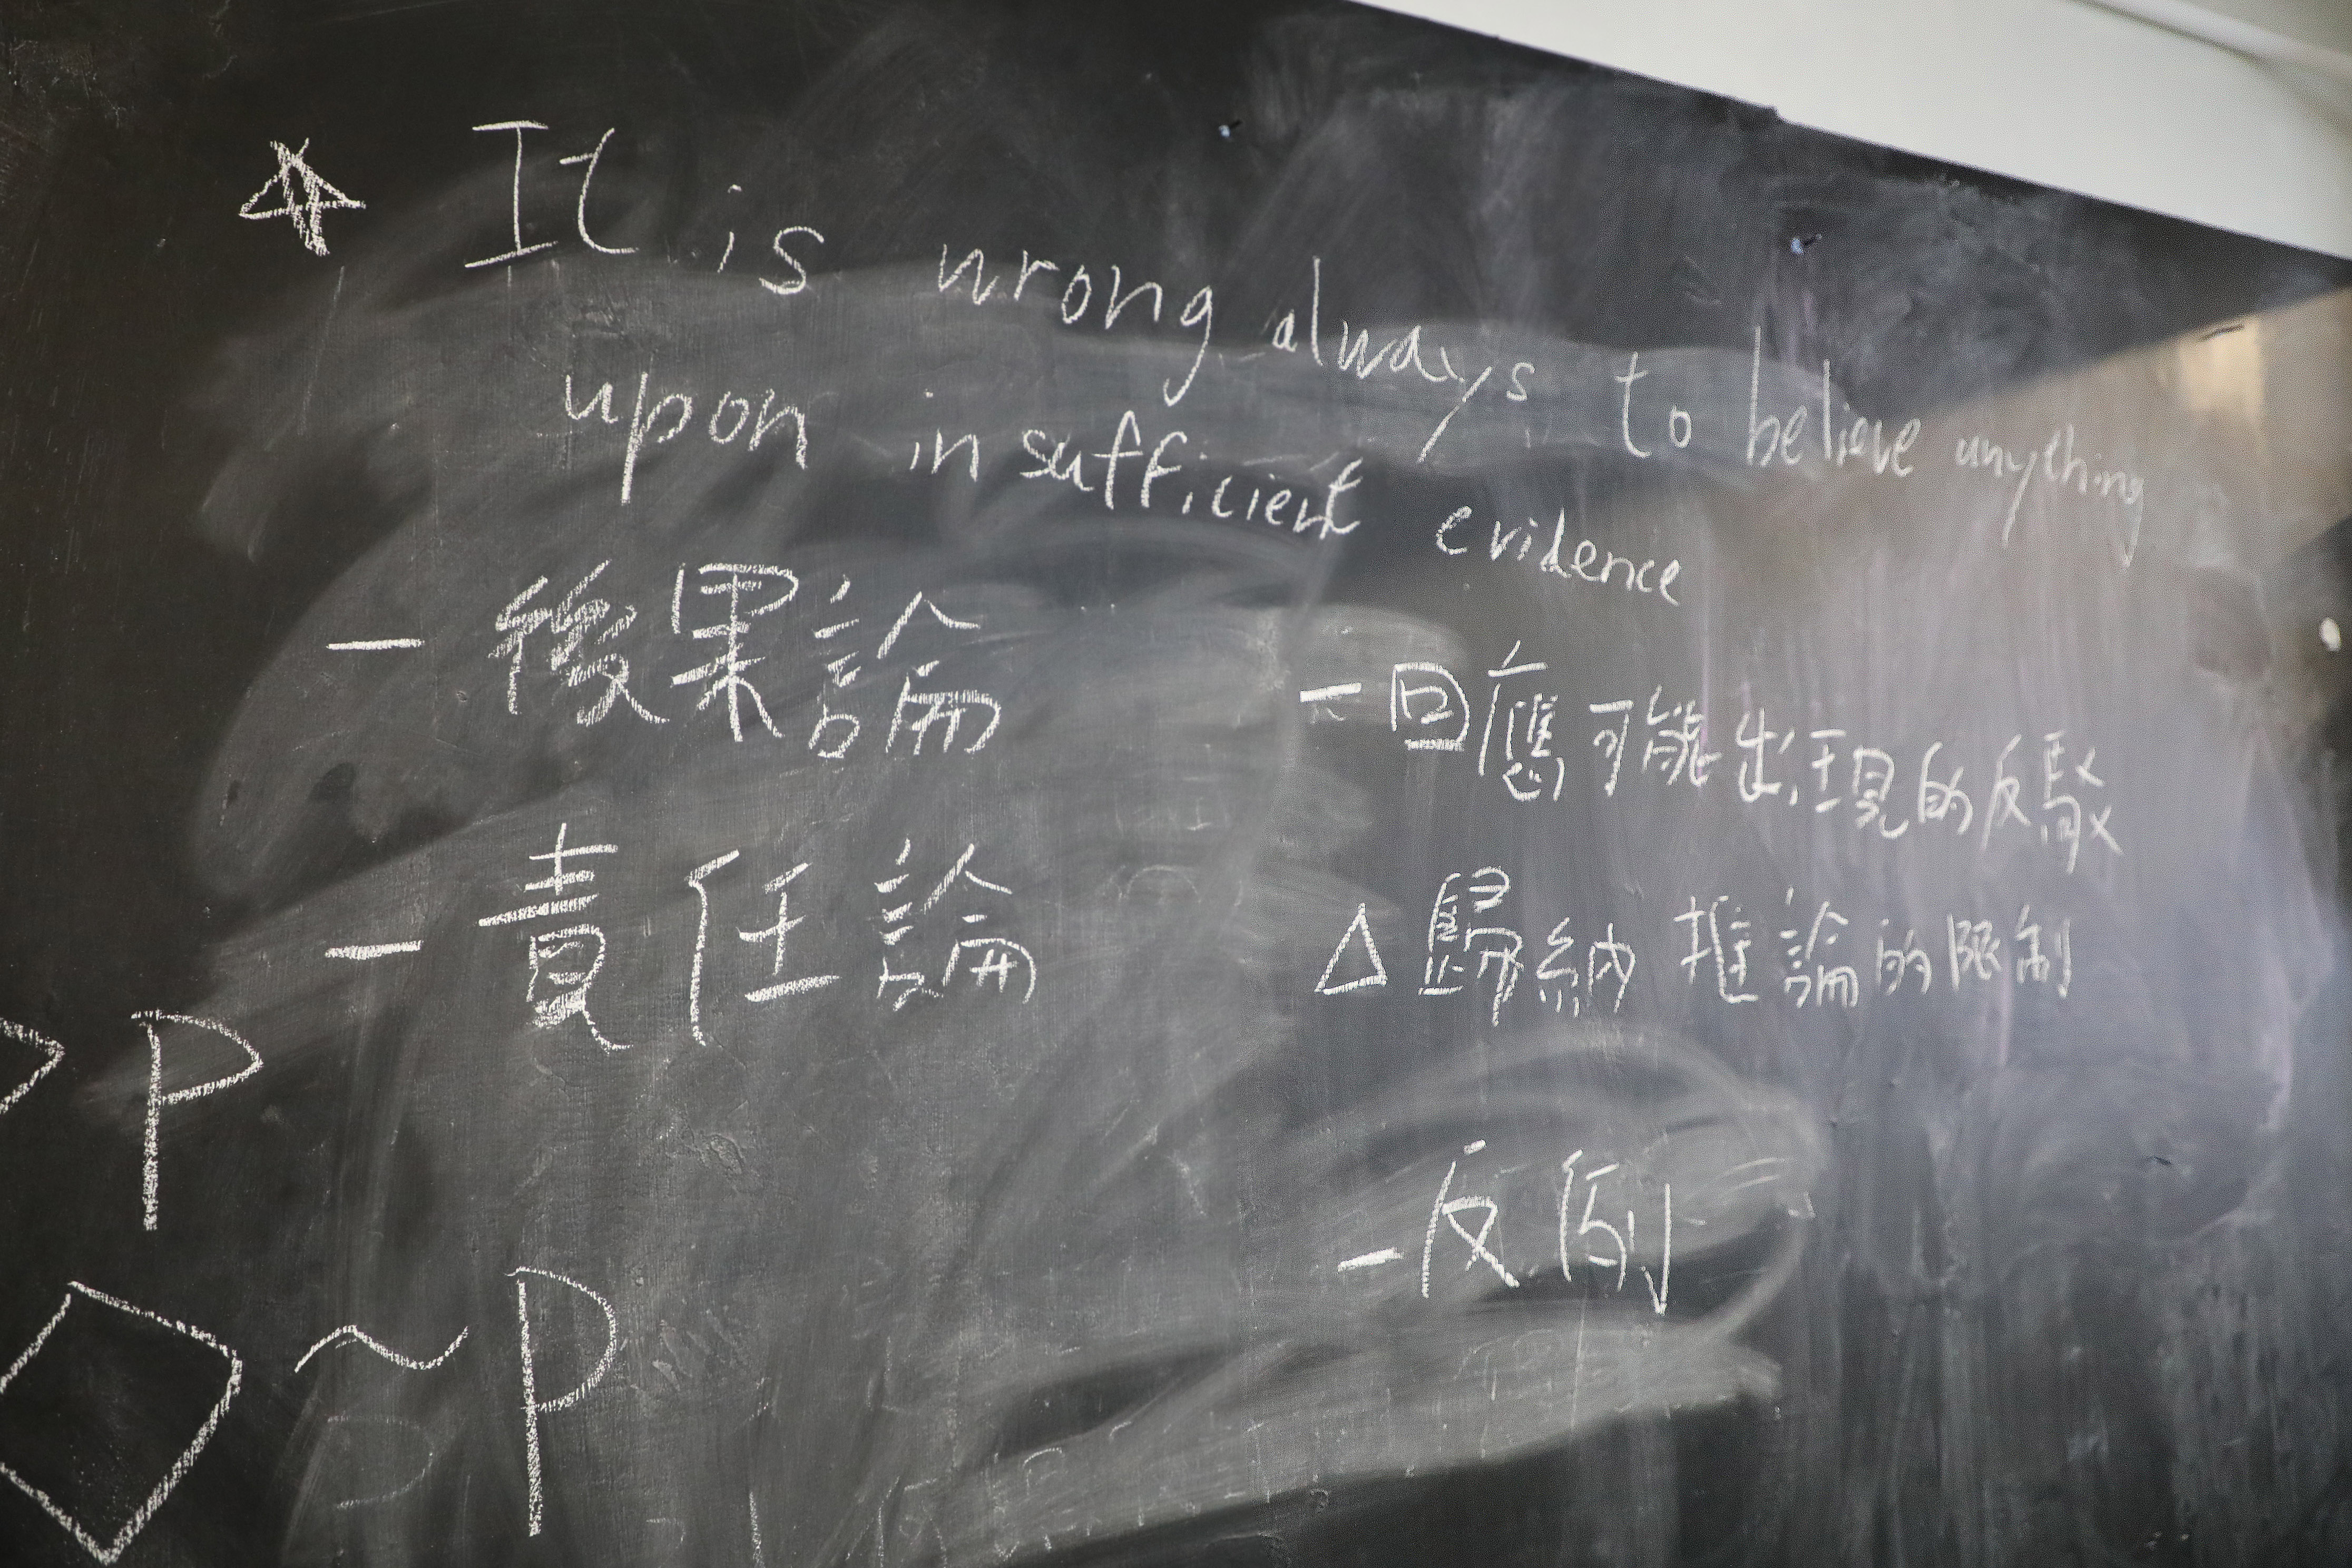 ☆ It is wrong always to believe anything
upon insufficient evidence
- 後果論
- 責任論
- 回應可能出現的反駁
△ 歸納推論的限制
- 反例
P
◇ ~ P